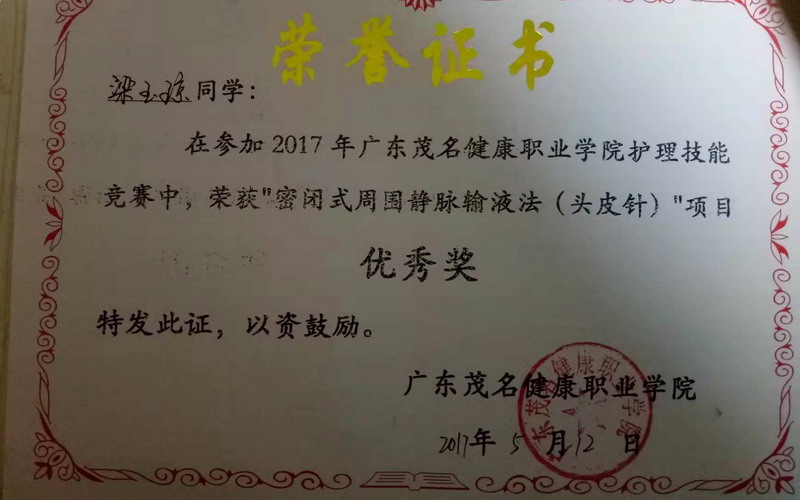 荣誉证书
梁玉琼同学：
在参加2017年广东茂名健康职业学院护理技能
竞赛中，荣获"密闭式周围静脉输液法（头皮针）"项目
优秀奖
特发此证，以资鼓励。
广东茂名健康职业学院
2017年5月12日
东茂名健康职 学院